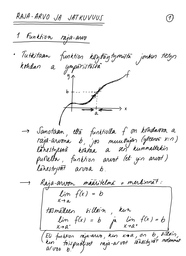 RAJA-ARVO JA JATKUVUUS
1
1 Funktion raja-arvo
• Tutkitaan funktion käyttäytymistä jonkin tietyn
kohdan a ympäristössä
f
b
a
x
→ Sanotaan, että funktiolla f on kohdassa a
raja-arvona b, jos muuttujan
lähestyessä kohtaa a kummaltakin
puolelta, funktion arvot (eli y:n arvot)
lähestyvät arvoa b.
→ Raja-arvon määritelmä + merkinnät:
lim f(x) = b
x→a
täsmälleen silloin, kun
lim f(x) = b ja lim f(x) = b
x→a⁺ x→a⁻
raja-arvo, kun x→a, on b, silloin,
kun toispuoliset raja-arvot lähestyvät
arvoa b.